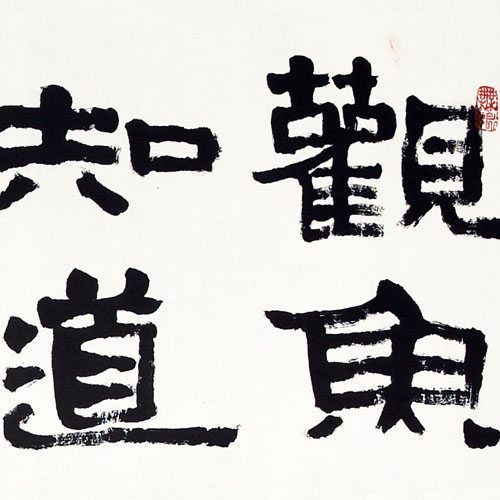 觀魚
知道